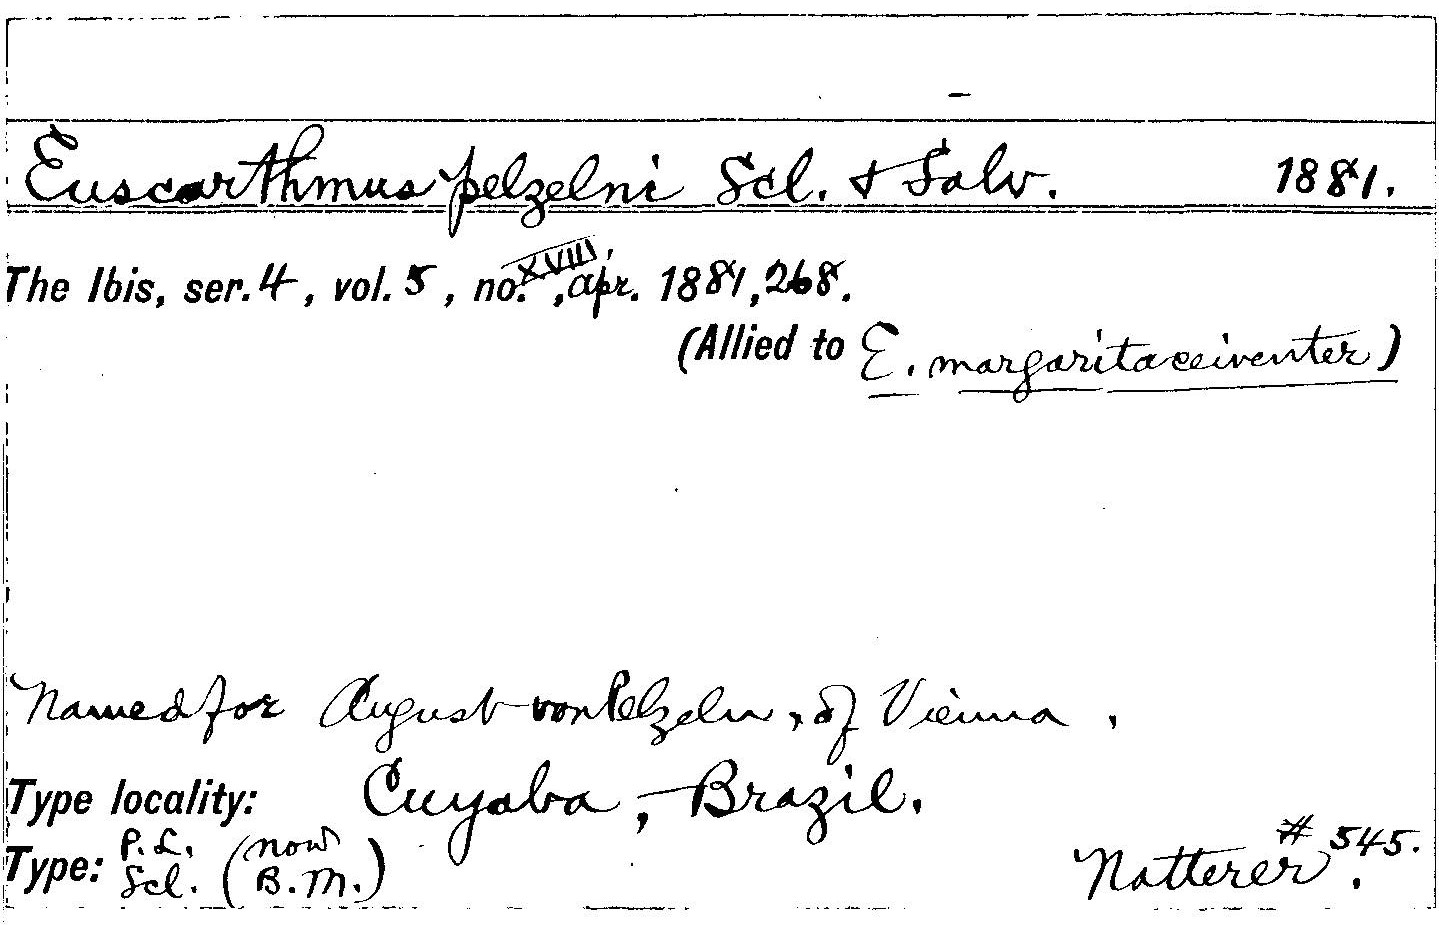 Euscarthmus pelzelni Scl. & Salv. 1881.
The Ibis, ser. 4, vol. 5, no. XVIII, apr. 1881, 268.
(Allied to E. margaritaceiventer)
Named for August von Pelzeln, of Vienna.
Type locality: Cuyaba, Brazil.
Type: P. L. Scl. (now B. M.) Natterer # 545.